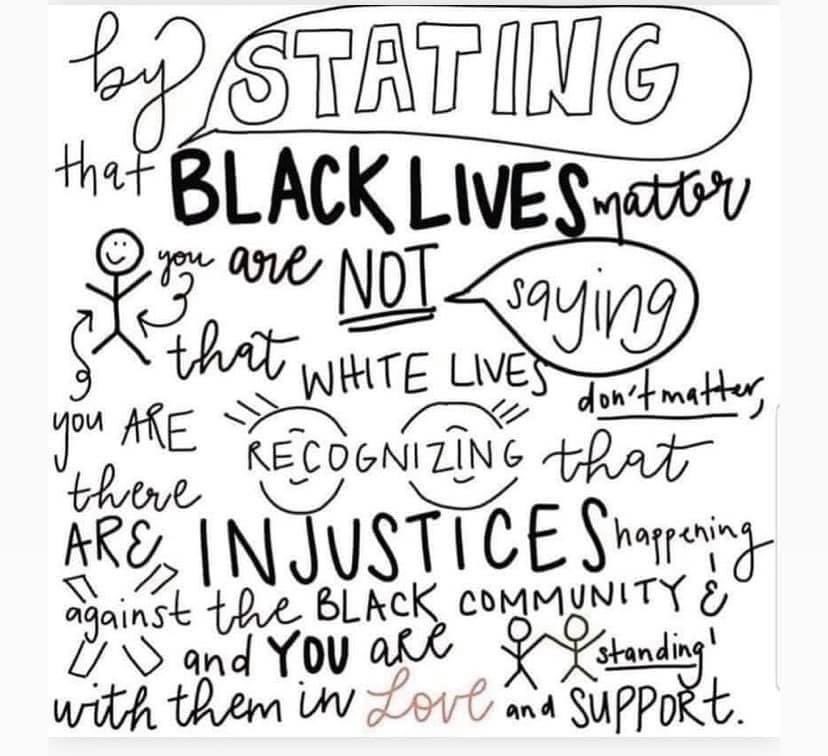 by STATING
that BLACK LIVES matter
you are NOT saying
that WHITE LIVES don't matter,
you ARE RECOGNIZING that
there
ARE INJUSTICES happening
against the BLACK COMMUNITY &
and YOU are standing
with them in Love and SUPPORT.